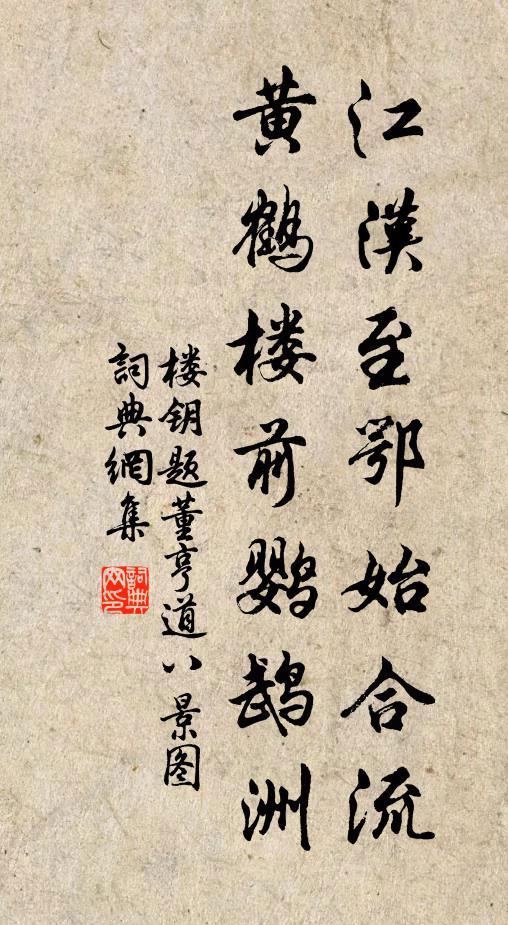 江漢至鄂始合流
黄鹤楼前鹦鹉洲
楼钥题董亨道八景图
詞典網集
詞典網印